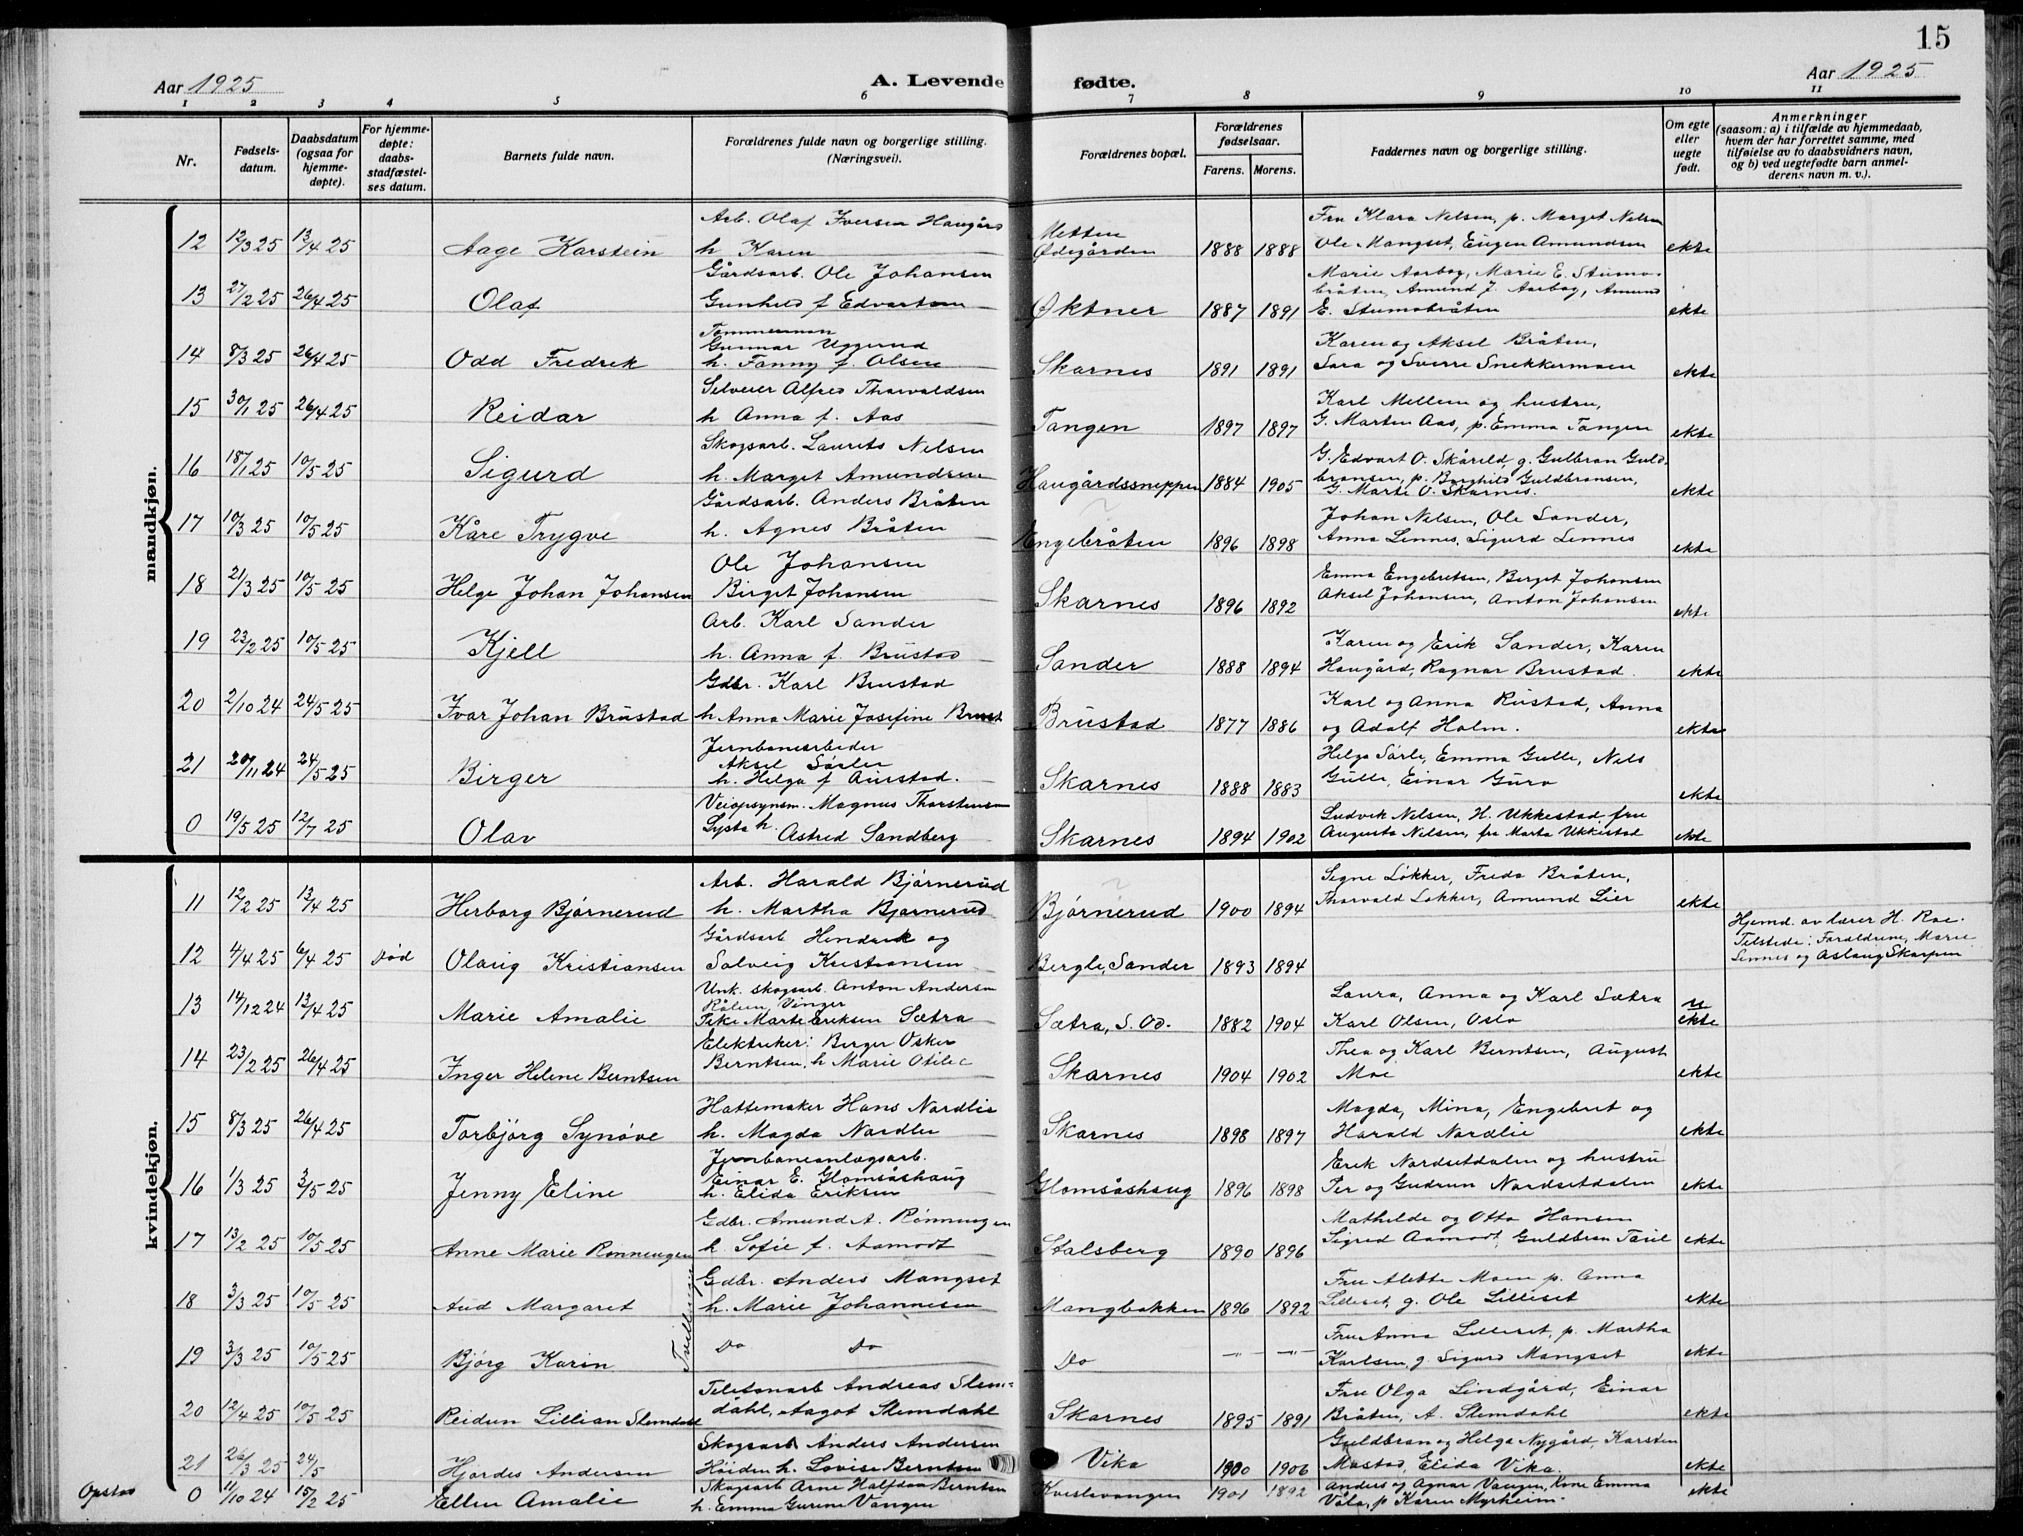 15
Aar 1925
A. Levende fødte.
Aar 1925
1 2 3 4 5 6 7 8 9 10 11
Nr.
Fødsels-
datum.
Daabsdatum
(ogsaa for
hjemme-
døpte).
For hjemme-
døpte:
daabs-
stadfæstel-
ses datum.
Barnets fulde navn.
Forældrenes fulde navn og borgerlige stilling.
(Næringsvei).
Forældrenes bopæl.
Forældrenes
fødselsaar.
Farens. Morens.
Faddernes navn og borgerlige stilling.
Om egte
eller
uegte
født.
Anmerkninger
(saasom: a) i tilfælde av hjemmedaab,
hvem der har forrettet samme, med
tilføielse av to daabsvidners navn,
og b) ved uegtefødte barn anmel-
derens navn m. v.).
mandkjøn.
12 12/3 25 13/4 25 Aage Karstein
Arb. Olaf Iversen Haugård
h. Karen
Metten
Ødegården 1888 1888
Fru Klara Nelsen, p. Marget Nelsen
Ole Mangset, Eugen Amundsen ekte
13 27/2 25 26/4 25 Olaf
Gårdsarb. Ole Johansen
Gunhild f. Edvartsen
Øktner 1887 1891
Marie Aarbog, Marie E. Stumo-
bråten, Amund J. Aarbog, Amund
E. Stumobråten ekte
14 8/3 25 26/4 25 Odd Fredrek
Tømmerman
Gunnar Uggerud
h. Fanny f. Olsen
Skarnes 1891 1891
Karen og Aksel Bråten,
Sara og Sverre Snekkermoen ekte
15 30/1 25 26/4 25 Reidar
Selveier Alfred Thorvaldsen
h Anna f. Aas
Tangen 1897 1897
Karl Mellem og hustru,
G. Marten Aas, p. Emma Tangen ekte
16 18/1 25 10/5 25 Sigurd
Skogsarb. Laurits Nelsen
h. Marget Amundsen
Haugårdssneppen 1884 1905
G. Edvart O. Skåreld, g. Gulbran Guld-
bransen, p. Borghild Guldbransen,
G. Marte O. Skarnes. ekte
17 10/3 25 10/5 25 Kåre Trygve
Gårdsarb. Anders Bråten
h. Agnes Bråten
Engebråten 1896 1898
Johan Nelsen, Ole Sander,
Anna Lennes, Sigurd Lennes ekte
18 21/3 25 10/5 25 Helge Johan Johansen
Ole Johansen
Birgit Johansen
Skarnes 1896 1892
Emma Engebretsen, Berget Johansen
Aksel Johansen, Anton Johansen ekte
19 23/2 25 10/5 25 Kjell
Arb. Karl Sander
h. Anna f. Brustad
Sander 1888 1894
Karen og Erik Sander, Karen
Haugård, Ragnar Brustad. ekte
20 2/10 24 24/5 25 Ivar Johan Brustad
Gdbr. Karl Brustad
h Anna Marie Josefine Brust
Brustad 1877 1886
Karl og Anna Rustad, Anna
og Adolf Holm. ekte
21 20/11 24 24/5 25 Birger
Jernbanearbeder
Aksel Sørlie
h. Helga f Aurstad.
Skarnes 1888 1883
Helga Sørle, Emma Gulle, Nils
Gulle, Einar Guro ekte
0 19/5 25 12/7 25 Olav
Veiopsynsm. Magnus Thorstensen
Lysta h. Astrid Sandberg
Skarnes 1894 1902
Ludvik Nelsen, H. Ukkestad, fru
Augusta Nelsen, fru Marta Ukkestad ekte
kvindekjøn.
11 12/2 25 13/4 25 Herborg Bjørnerud
Arb. Harald Bjørnerud
h. Martha Bjørnerud
Bjørnerud 1900 1894
Segne Løkker, Freda Bråten,
Thorvald Løkker, Amund Lier ekte
12 4/4 25 6/4 25 Død Olaug Kristiansen
Gårdsarb Hendrek og
Solveig Kristiansen
Bergle, Sander 1893 1894
Hjemd. av lærer H. Roe.
Tilstede: Forældrene, Marie
Lennes og Aslaug Skarpen
13 14/12 24 13/4 25 Marie Amalie
Unk. skogsarb. Anton Andersen
Råten, Vinger
Pike Marte Eriksen Sætra
Sætra, S. Od. 1882 1904
Laura, Anna og Karl Sætra
Karl Olsen, Oslo
u
ekte
14 23/2 25 26/4 25 Inger Helene Berntsen
Elektreker: Berger Osker
Berntsen, h Marie Otilie
Skarnes 1904 1902
Thea og Karl Berntsen, August
Moe ekte
15 8/3 25 26/4 25 Torbjørg Synøve
Hattemaker Hans Nordlie
h. Magda Nordlie
Skarnes 1898 1897
Magda, Mina, Engebret og
Harald Nordlie ekte
16 1/3 25 3/5 25 Jenny Eline
Jernbaneanlægsarb.
Einar E. Glomsåshaug
h. Elida Eriksen
Glomsåshaug 1896 1898
Erik Nordsetdalen og hustru
Per og Gudrun Nordsetdalen ekte
17 13/2 25 10/5 25 Anne Marie Rønningen
Gdbr. Amund A. Rønningen
h. Sofie f. Aamodt
Stalsberg 1890 1896
Mathilde og Otto Hansen
Sigred Aamodt, Guldbran Taul ekte
18 3/3 25 10/5 25 Aud Margaret
Tvillinger
Gdbr. Anders Mangset
h. Marie Johannesen
Mangbakken 1896 1892
Fru Alette Moen p. Anna
Lilleset, g. Ole Lilleset ekte
19 3/3 25 10/5 25 Bjørg Karin
Do Do
Do —"— —"—
Fru Anna Lilleset, p. Martha
Karlsen, g. Sigurd Mangset ekte
20 12/4 25 10/5 25 Reidun Lillian Slemdahl
Telefonarb Andreas Slem=
dahl, Aagot Slemdahl
Skarnes 1895 1891
Fru Olga Lindgård, Einar
Bråten, A. Slemdahl ekte
21 26/3 25 24/5 Hjørdes Andersen
Skogsarb Anders Andersen
Høiden h. Lovise Berntsen
Vika 1900 1906
Guldbran og Helga Nygård, Karsten
Mostad, Elida Vika. ekte
Opstad 0 11/10 24 15/2 25 Ellen Amalie
Skogsarb Arne Halfdan Berntsen
h. Emma Gurine Vangen
Kveslevangen 1901 1892
Anders og Agnar Vangen, kone Emma
Våla, p Karen Myrheim. ekte